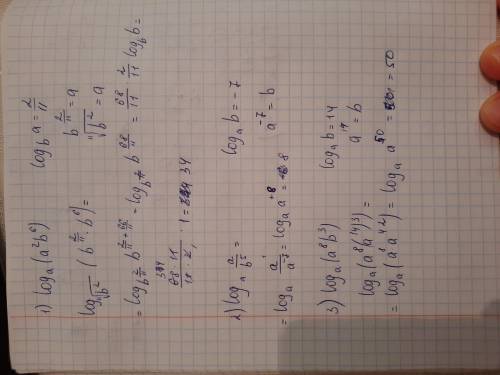 1) log_a(a²b⁶)    log_b a = 2/11
b^(2/11) = a
log_(¹¹√b²) (b^(2/11) · b⁶) =    ¹¹√b² = a
= log_(b^(2/11)) b^(2/11 + 66/11) = log_(b^(2/11)) b^(68/11) = 68/11 2/11 log_b b =
68 · 11 / 11 · 2 · 1 = 34
2) log_a a/b⁵ =    log_a b = -7
a⁻⁷ = b
= log_a a/a⁻⁷ = log_a a⁺⁸ = 8
3) log_a(a⁸b³)    log_a b = 14
a¹⁴ = b
log_a(a⁸(a¹⁴)³) =
= log_a(a⁸a⁴²) = log_a a⁵⁰ = 50